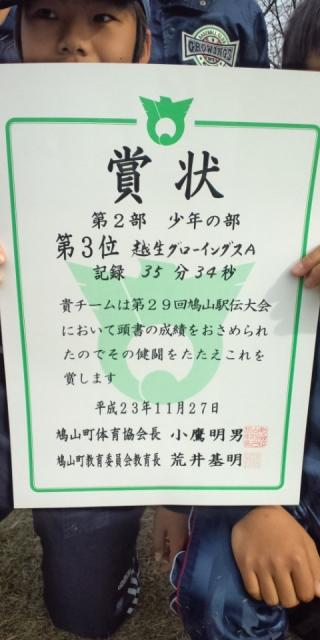 BASEBALL CLUB
GROWINGS
賞状
第2部 少年の部
第3位 越生グローイングスA
記録 35分34秒
貴チームは第29回鳩山駅伝大会
において頭書の成績をおさめられ
たのでその健闘をたたえこれを
賞します
平成23年11月27日
鳩山町体育協会長 小鷹明男
鳩山町教育委員会教育長 荒井基明